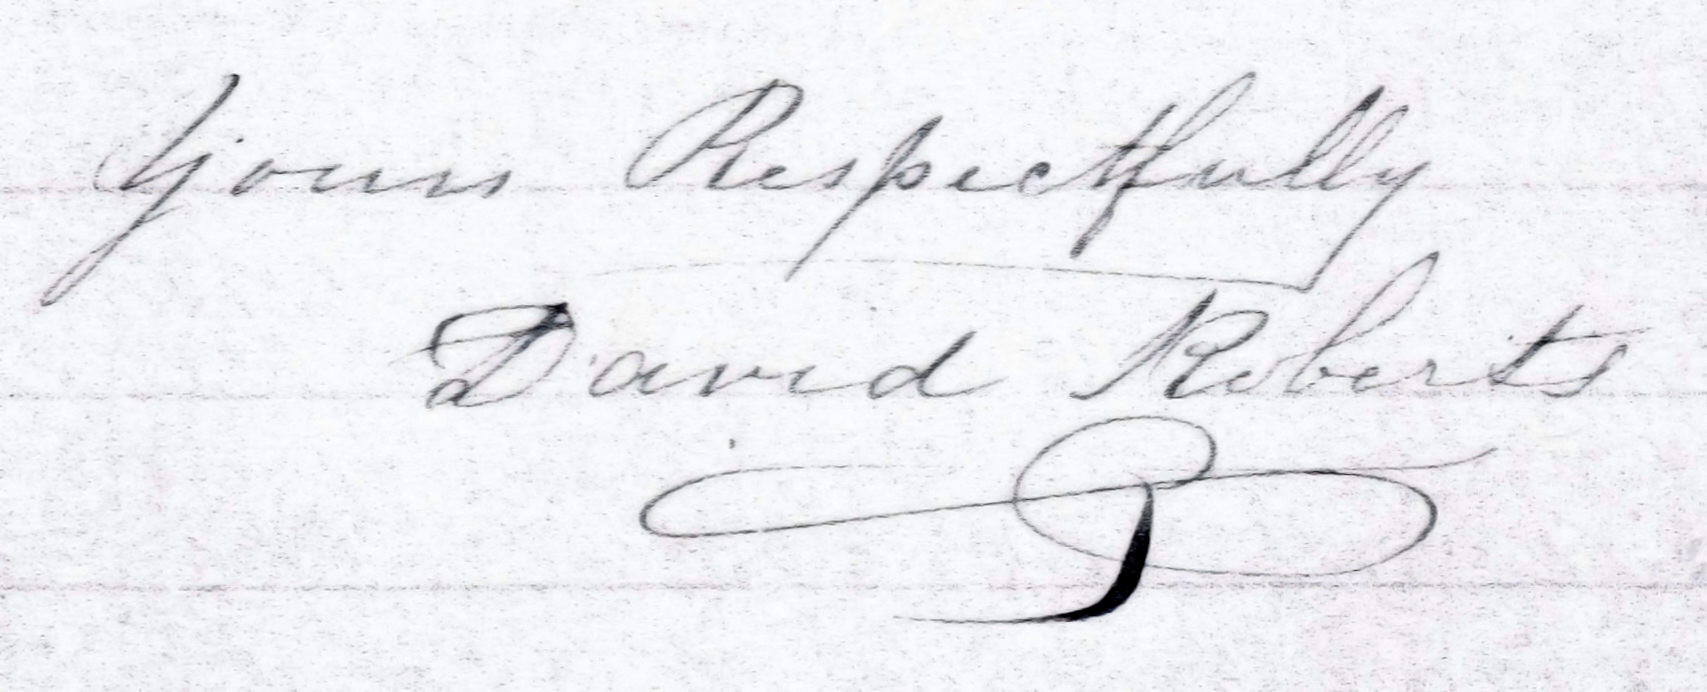 Yours Respectfully
David Roberts